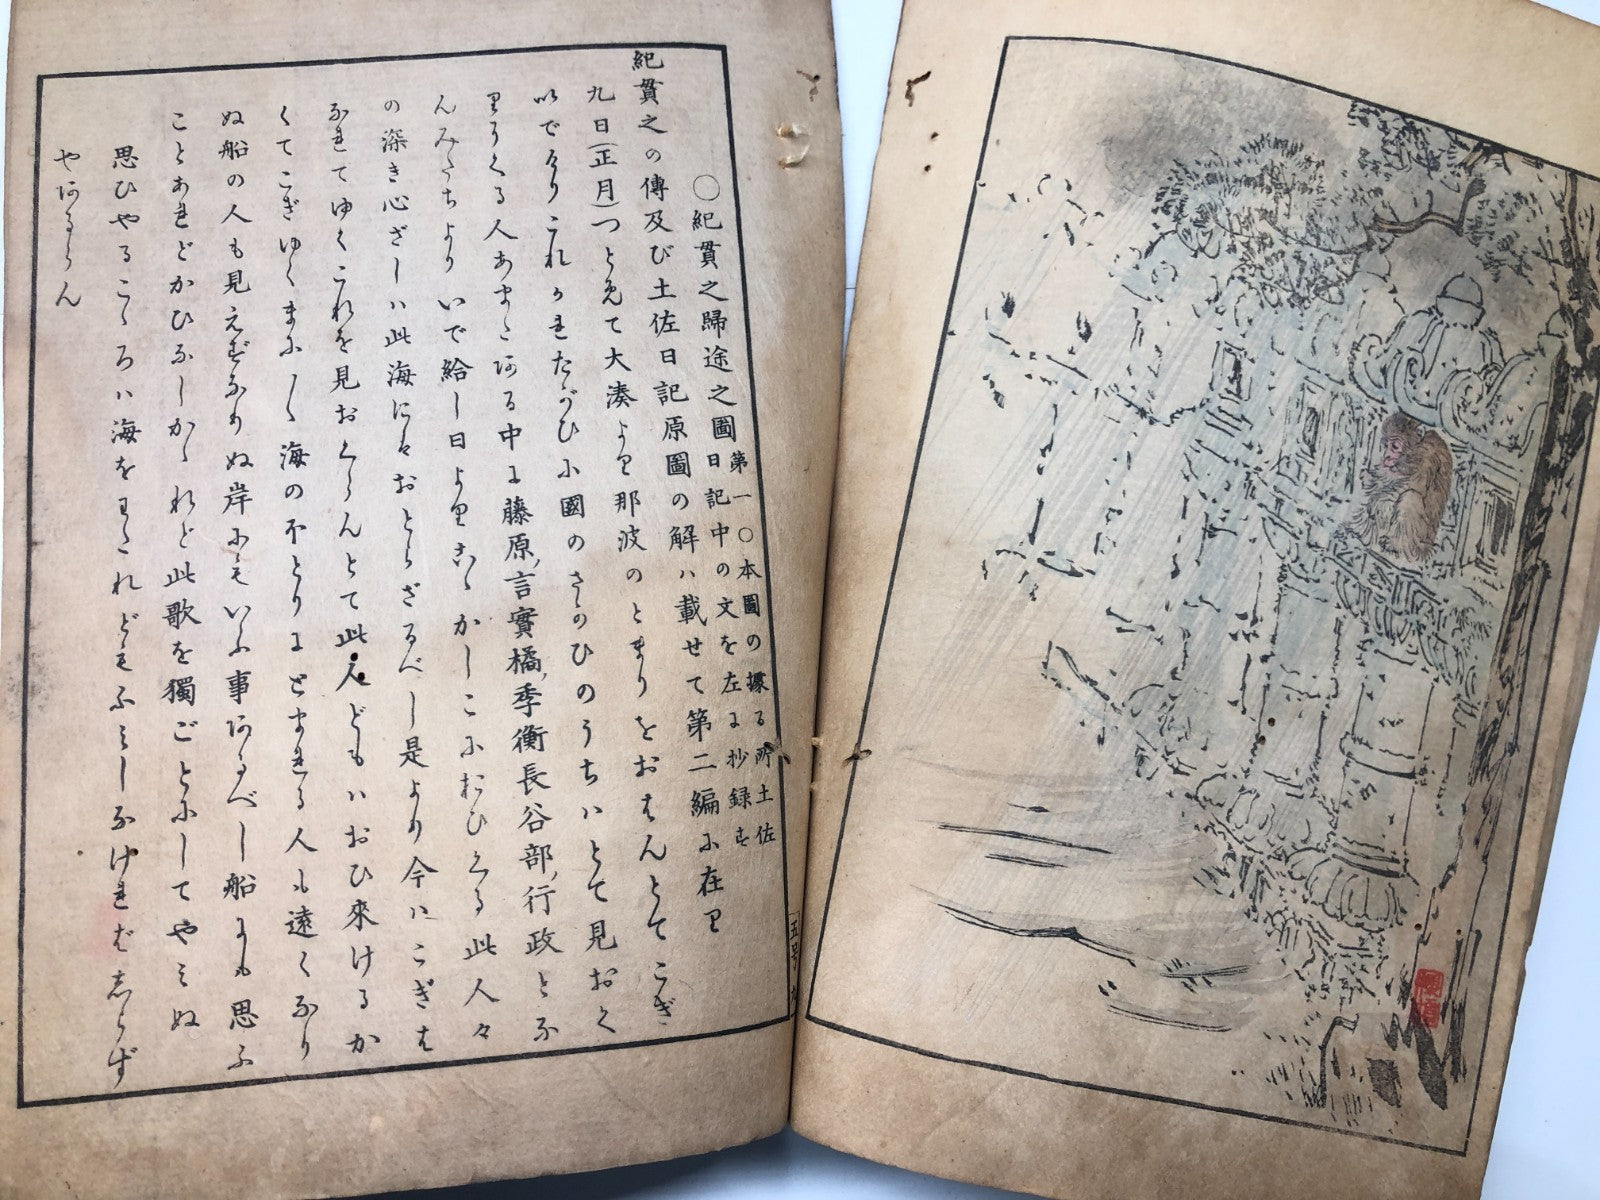 ○紀貫之歸途之圖第一 ○本圖の據る所土佐
日記中の文を左に抄録す
紀貫之の傳及び土佐日記原圖の解ハ載せて第二編に在り
九日(正月)つとめて大湊より那波のとまりをおはんとてこぎ
いでけりこれかれたがひに國のさかひのうちハとて見おく
りにくる人あまたある中に藤原、言實橘、季衡長谷部、行政とな
んみたちよりいで給し日よりこゝかしこにおひくる此人々
の深き心ざしハ此海にもおとらざるべし是より今はこぎは
なれてゆくこれを見おくらんとて此人どもハおひ來けるか
くてこぎゆくまに〳〵海のほとりにとまれる人も遠くなり
ぬ船の人も見えずなりぬ岸にもいふ事あるべし船にも思ふ
ことあれどかひなしかゝれど此歌を獨ごとにしてやミぬ
思ひやるこゝろハ海をわたれどもふミしなければしらず
やあるらん
五号